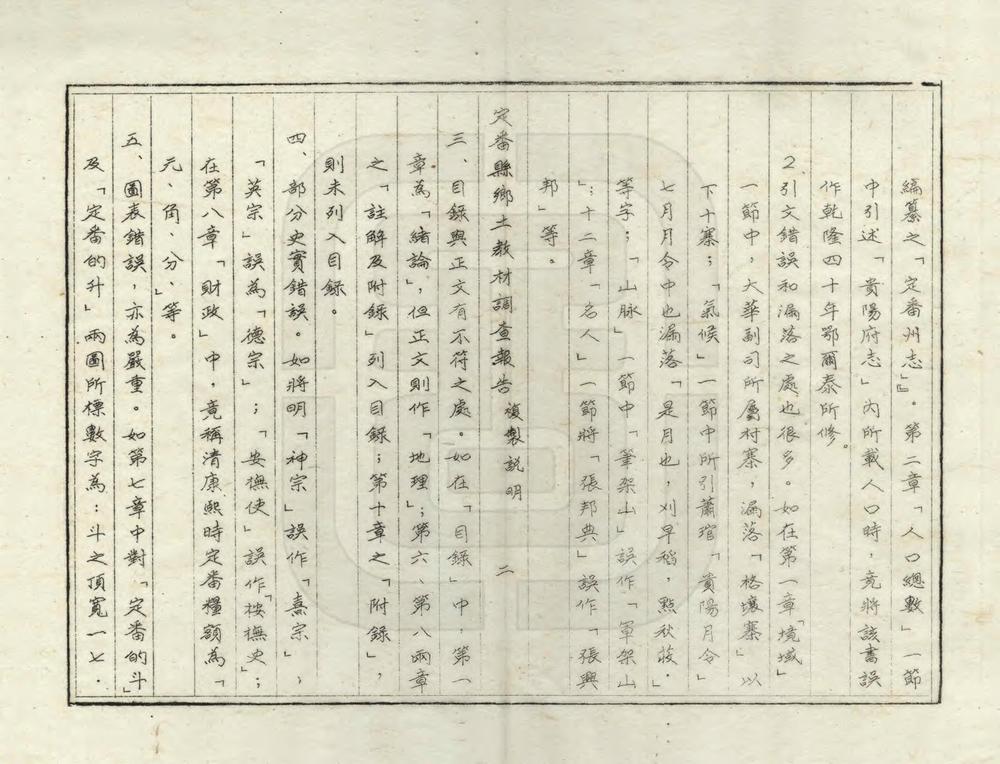 編纂之「定番州志」』。第二章「人口總數」一節
中引述「貴陽府志」內所載人口時，竟將該書誤
作乾隆四十年鄂爾泰所修。
2引文錯誤和漏落之處也很多。如在第一章「境域」
一節中，大華副司所屬村寨，漏落「格壤寨」以
下十寨；「氣候」一節中所引蕭琯「貴陽月令」
七月月令中也漏落「是月也，刈早稻，點秋莜。」
等字；「山脉」一節中「筆架山」誤作「軍架山
」；十二章「名人」一節將「張邦典」誤作「張興
邦」等。
定番縣鄉土教材調查報告 複製説明 二
三、目錄與正文有不符之處。如在「目錄」中，第一
章為「緒論」，但正文則作「地理」；第六、第八兩章
之「註解及附錄」列入目錄；第十章之「附錄」，
則未列入目錄。
四、部分史實錯誤。如將明「神宗」誤作「熹宗」；
「英宗」誤為「德宗」；「安撫使」誤作「桉撫史」；
在第八章「財政」中，竟稱清康熙時定番糧額為「
元、角、分、」等。
五、圖表錯誤，亦為嚴重。如第七章中對「定番的斗」
及「定番的升」兩圖所標數字為：斗之頂寬一七．